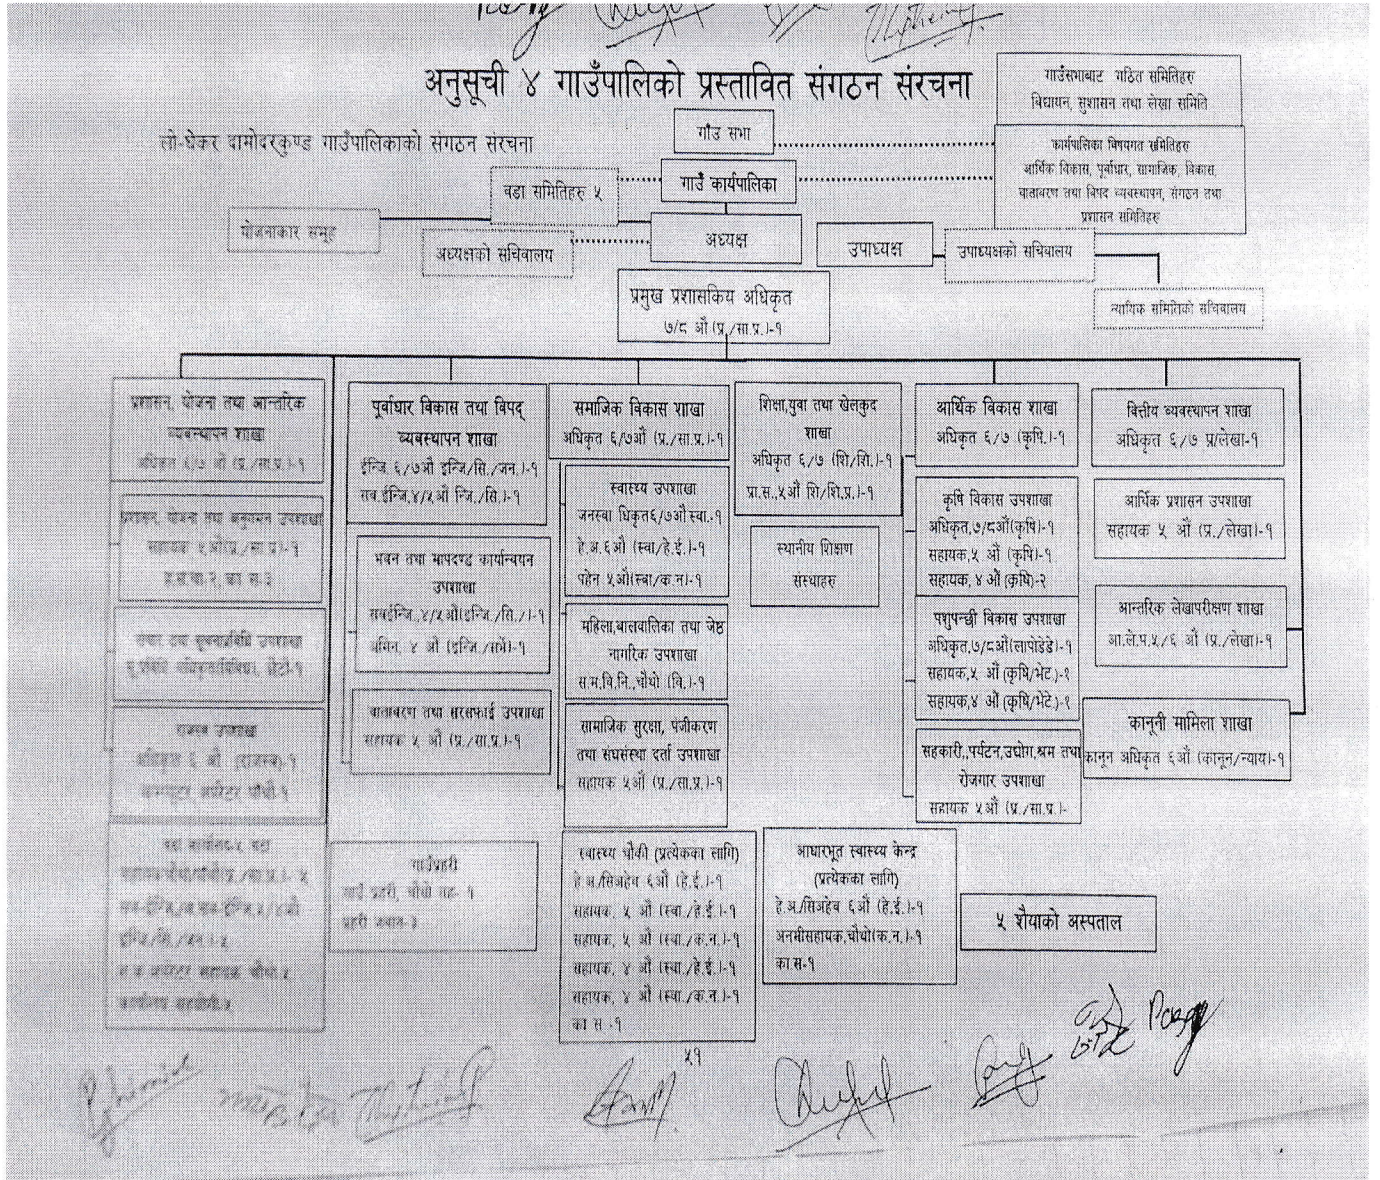 अनुसूची ४ गाउँपालिको प्रस्तावित संगठन संरचना
लो-घेकर दामोदरकुण्ड गाउँपालिकाको संगठन संरचना
गाउँसभाबाट गठित समितिहरु
विद्यायन, सुशासन तथा लेखा समिति
गाँउ सभा
कार्यपालिका विषयगत समितिहरु
आर्थिक विकास, पूर्वाधार, सामाजिक, विकास,
वातावरण तथा विपद व्यवस्थापन, संगठन तथा
प्रशासन समितिहरु
गाउँ कार्यपालिका
वडा समितिहरु ५
योजनाकार समूह
अध्यक्षको सचिवालय
अध्यक्ष
उपाध्यक्ष
उपाध्यक्षको सचिवालय
न्यायिक समितिको सचिवालय
प्रमुख प्रशासकिय अधिकृत
७/८ औं (प्र./सा.प्र.)-१
प्रशासन, योजना तथा आन्तरिक
व्यबस्थापन शाखा
अधिकृत ६/७ औं (प्र./सा.प्र.)-१
प्रशासन, योजना तथा अनुगमन उपशाखा
सहायक ५औं(प्र./सा.प्र)-१
सूचना प्रविधि उपशाखा
राजस्व उपशाखा
अधिकृत ६ औं (राजस्व)-१
कम्प्यूटर अपरेटर चौथो-१
पूर्वाधार विकास तथा विपद्
व्यबस्थापन शाखा
ईन्जि ६/७औ इन्जि/सि./जन.)-१
सब.ईन्जि.४/५औं न्जि./सि.)-१
भवन तथा मापदण्ड कार्यान्वयन
उपशाखा
सबईन्जि.,४/५औं(इन्जि./सि./)-१
अमिन, ४ औं (इन्जि./सर्भे)-१
वातावरण तथा सरसफाई उपशाखा
सहायक ५ औं (प्र./सा.प्र.)-१
गाउँप्रहरी
गाउँ प्रहरी, चौथो सह- १
प्रहरी जवान-३
समाजिक विकास शाखा
अधिकृत ६/७औं (प्र./सा.प्र.)-१
स्वास्थ्य उपशाखा
जनस्वा धिकृत६/७औ स्वा.-१
हे.अ.६औं (स्वा/हे.ई.)-१
पहेन ५औं(स्वा/क.न)-१
महिला,बालवालिका तथा जेष्ठ
नागरिक उपशाखा
स.म.वि.नि.,चौथो (वि.)-१
सामाजिक सुरक्षा, पंजीकरण
तथा संघसंस्था दर्ता उपशाखा
सहायक ५औं (प्र./सा.प्र.)-१
स्वास्थ्य चौकी (प्रत्येकका लागि)
हे.अ/सिअहेव ६औं (हे.ई.)-१
सहायक, ५ औं (स्वा./हे.ई.)-१
सहायक, ५ औं (स्वा./क.न.)-१
सहायक, ४ औं (स्वा./हे.ई.)-१
सहायक, ४ औं (स्वा./क.न.)-१
का स -१
शिक्षा,युवा तथा खेलकुद
शाखा
अधिकृत ६/७ (शि/शि.)-१
प्रा.स.,५औं शि/शि.प्र.)-१
स्थानीय शिक्षण
संस्थाहरु
आधारभूत स्वास्थ्य केन्द्र
(प्रत्येकका लागि)
हे.अ/सिअहेव ६औं (हे.ई.)-१
अनमीसहायक,चौथो(क.न.)-१
का.स-१
आर्थिक विकास शाखा
अधिकृत ६/७ (कृषि.)-१
कृषि विकास उपशाखा
अधिकृत,७/८औं(कृषि)-१
सहायक,५ औं (कृषि)-१
सहायक, ४ औं (कृषि)-२
पशुपन्छी विकास उपशाखा
अधिकृत,७/८औं(लापोडेडे)-१
सहायक,५ औं (कृषि/भेट.)-१
सहायक,४ औं (कृषि/भेटे.)-१
सहकारी,,पर्यटन,उद्योग,श्रम तथा
रोजगार उपशाखा
सहायक ५औं (प्र./सा.प्र.)-
५ शैयाको अस्पताल
वित्तीय व्यबस्थापन शाखा
अधिकृत ६/७ प्र/लेखा-१
आर्थिक प्रशासन उपशाखा
सहायक ५ औं (प्र./लेखा)-१
आन्तरिक लेखापरीक्षण शाखा
आ.ले.प.५/६ औं (प्र./लेखा)-१
कानूनी मामिला शाखा
कानून अधिकृत ६औं (कानून/न्याय)-१
५१